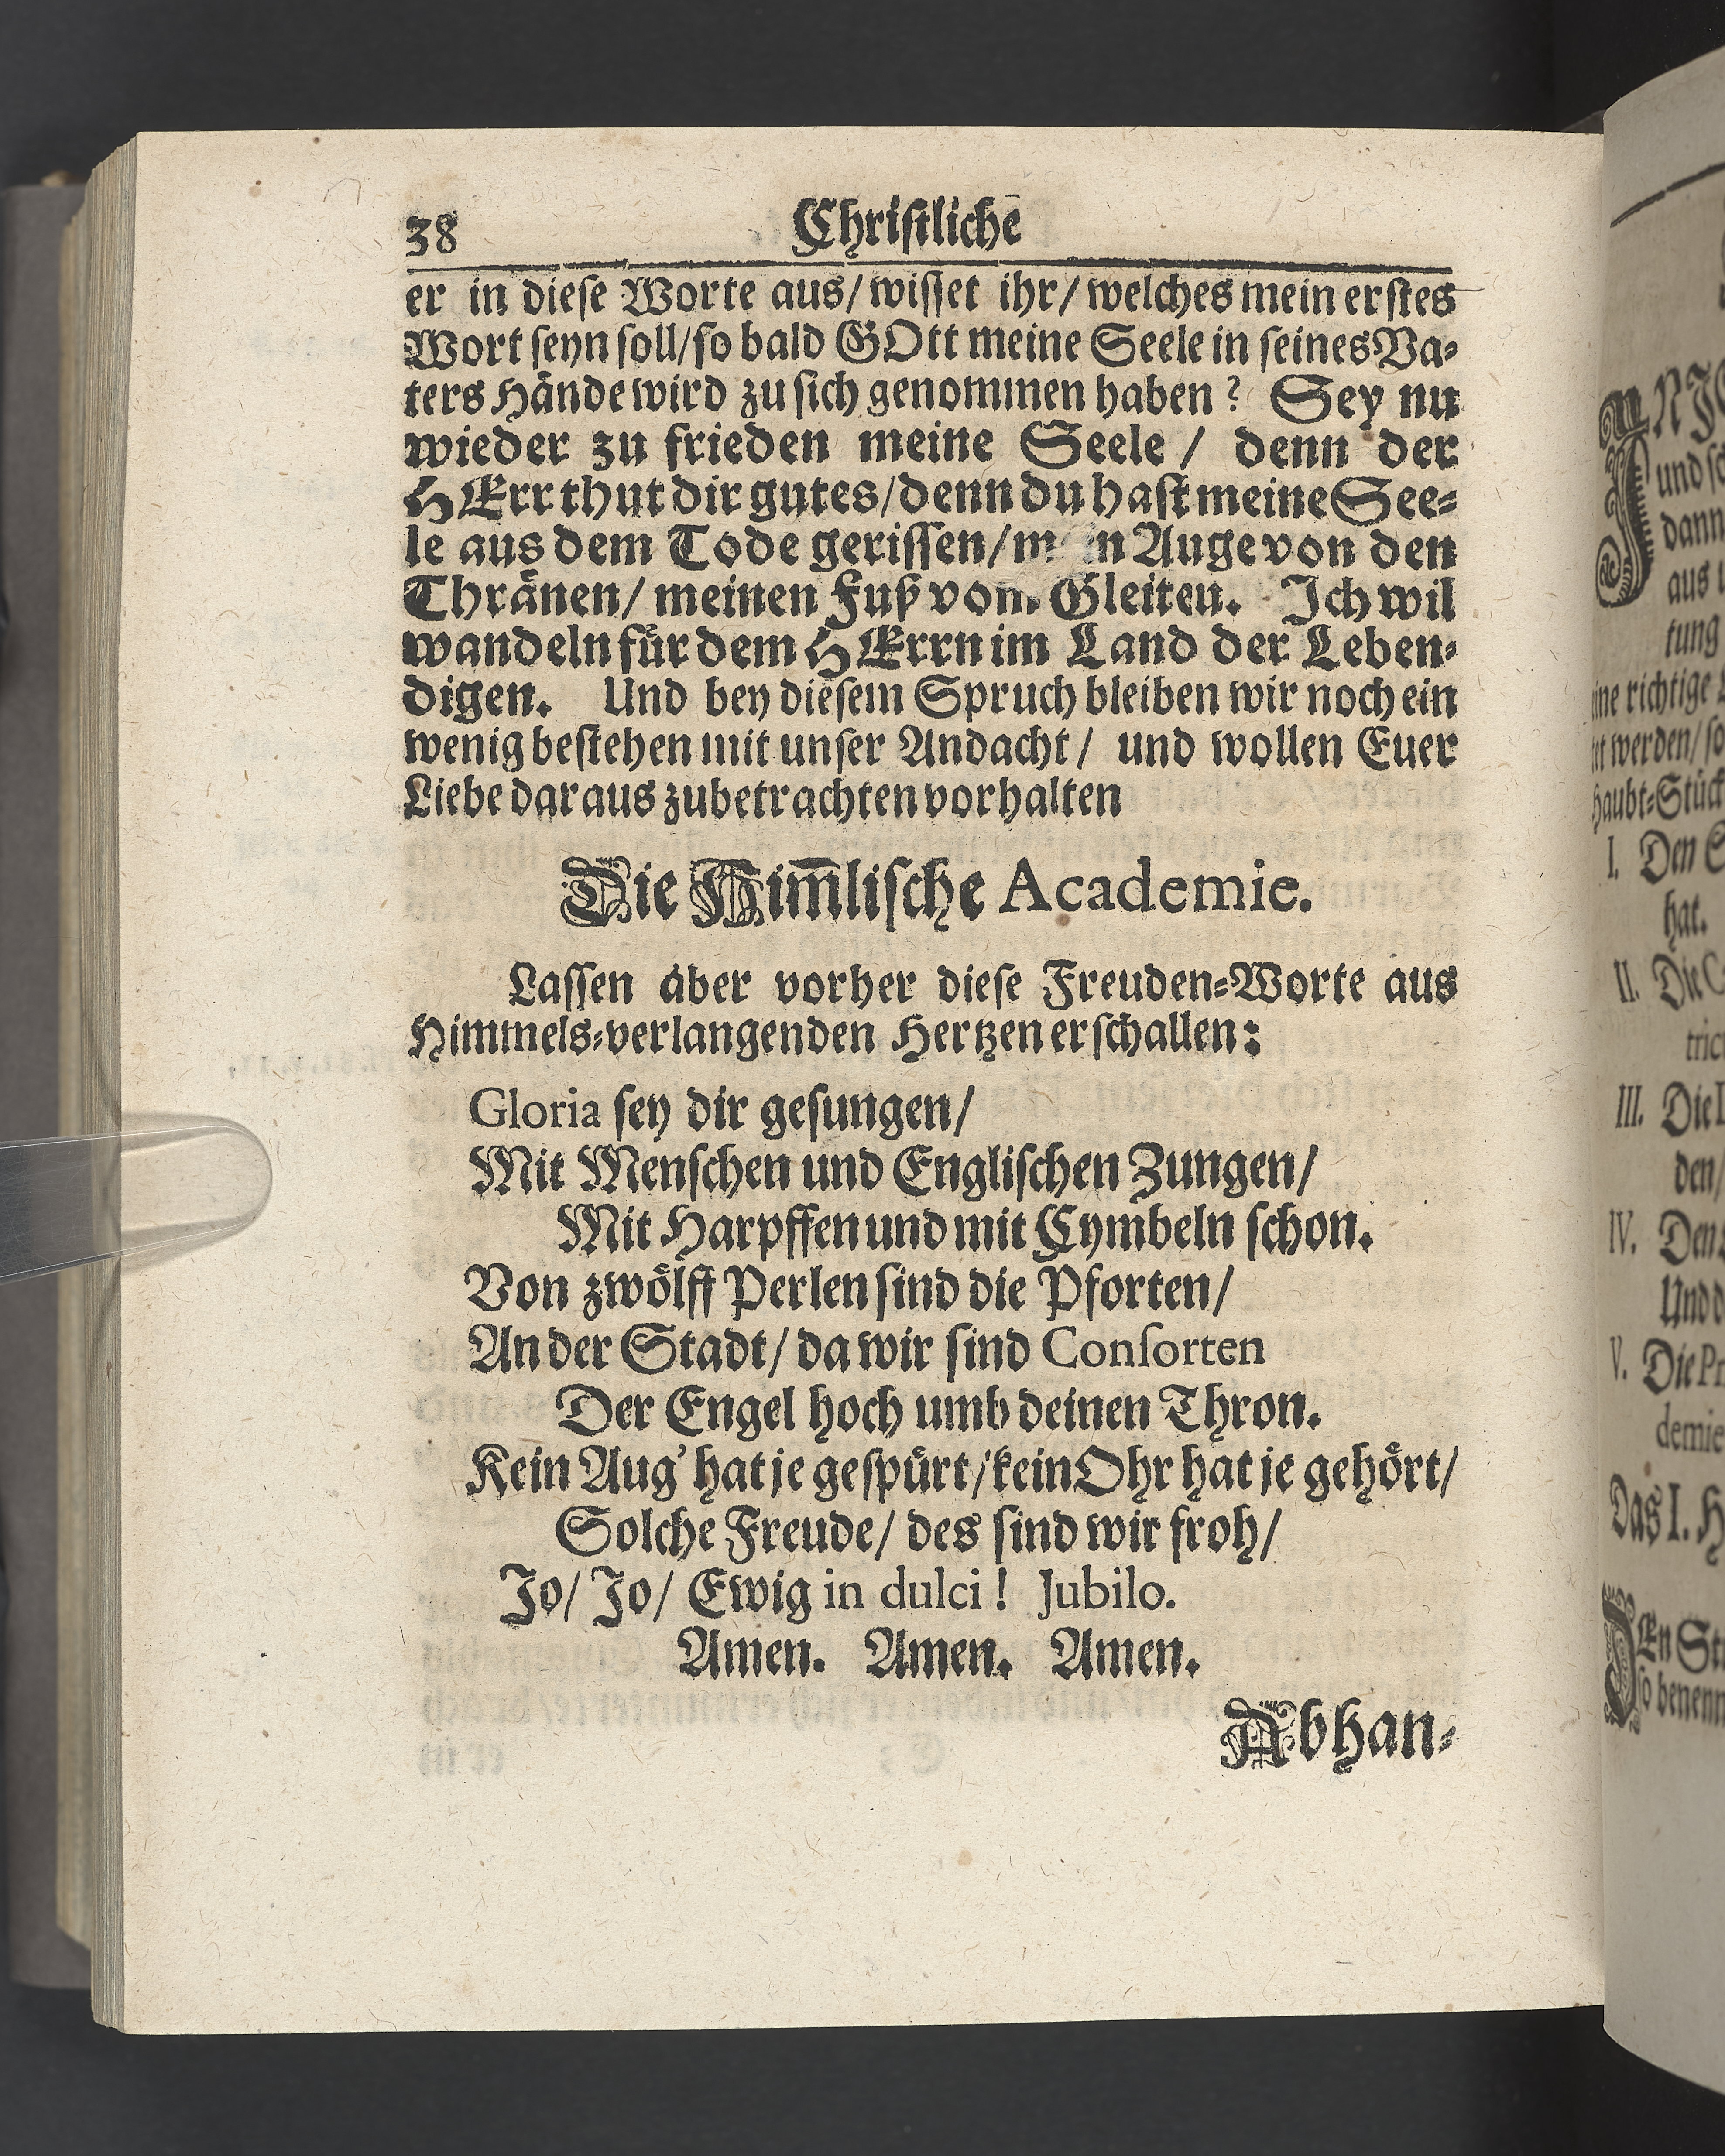 38 Chriſtliche
er in dieſe Worte aus/ wiſſet ihr/ welches mein erſtes
Wort ſeyn ſoll/ ſo bald GOtt meine Seele in ſeines Va⸗
ters Hände wird zu ſich genommen haben? Sey nu
wieder zu frieden meine Seele / denn der
HErr thut dir gutes/ denn du haſt meine See⸗
le aus dem Tode geriſſen/ Auge von den
Thränen/ meinen Fuß vom Gleiten. Ich wil
wandeln für dem HErrn im Land der Leben⸗
digen. Und bey dieſem Spruch bleiben wir noch ein
wenig beſtehen mit unſer Andacht/ und wollen Euer
Liebe daraus zubetrachten vorhalten
Die Him̅liſche Academie.
Laſſen aber vorher dieſe Freuden⸗Worte aus
Himmels⸗verlangenden Hertzen erſchallen:
Gloria ſey dir geſungen/
Mit Menſchen und Engliſchen Zungen/
Mit Harpffen und mit Cymbeln ſchon.
Von zwölff Perlen ſind die Pforten/
An der Stadt/ da wir ſind Conſorten
Der Engel hoch umb deinen Thron.
Kein Aug' hat je geſpürt/ kein Ohr hat je gehört/
Solche Freude/ des ſind wir froh/
Jo/ Jo/ Ewig in dulci! Jubilo.
Amen. Amen. Amen.
Abhan⸗
und
dann
aus
tung
richtige
werden/
haubt⸗Stück
I. Den
hat.
II. Die
III. Die
den/
IV. Den
Und
V. Die
Das I.